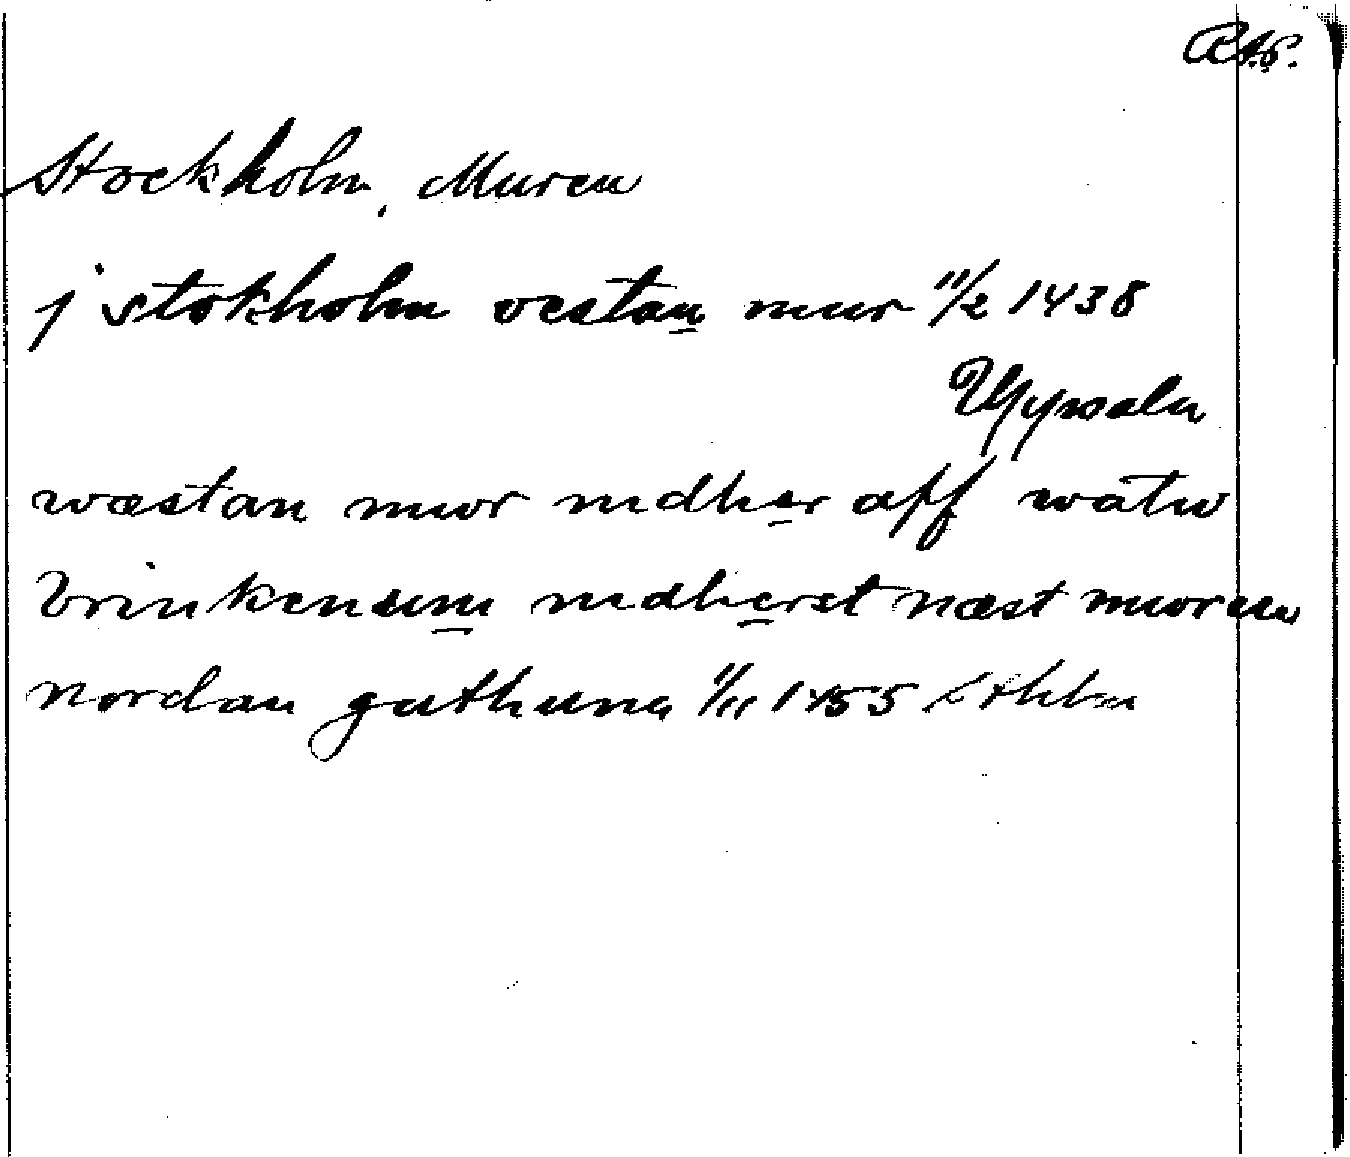 RAp.
Stockholm, Muren
j stokholm vestan mur 11/2 1438
Uppsala
wæstan mwr nedher aff watw
brinkenum nedherst næst mwren
nordan gathuna 1/11 1455 Sthlm